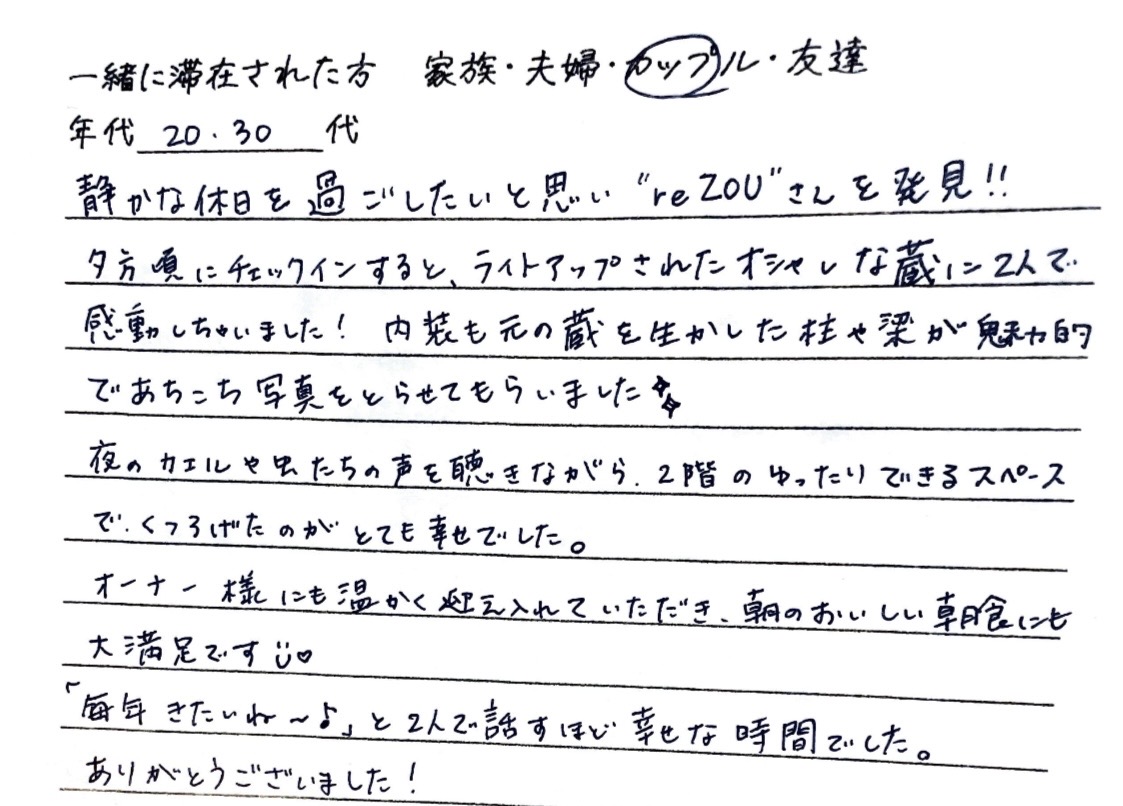 一緒に滞在された方 家族・夫婦・カップル・友達
年代 20・30 代
静かな休日を過ごしたいと思い"reZOU"さんを発見!!
夕方頃にチェックインすると、ライトアップされたオシャレな蔵に2人で
感動しちゃいました! 内装も元の蔵を生かした柱や梁が魅力的
であちこち写真をとらせてもらいました
夜のカエルや虫たちの声を聴きながら、2階のゆったりできるスペース
で、くつろげたのがとても幸せでした。
オーナー様にも温かく迎え入れていただき、朝のおいしい朝食にも
大満足です☺♡
「毎年きたいね〜♪」と2人で話すほど幸せな時間でした。
ありがとうございました!